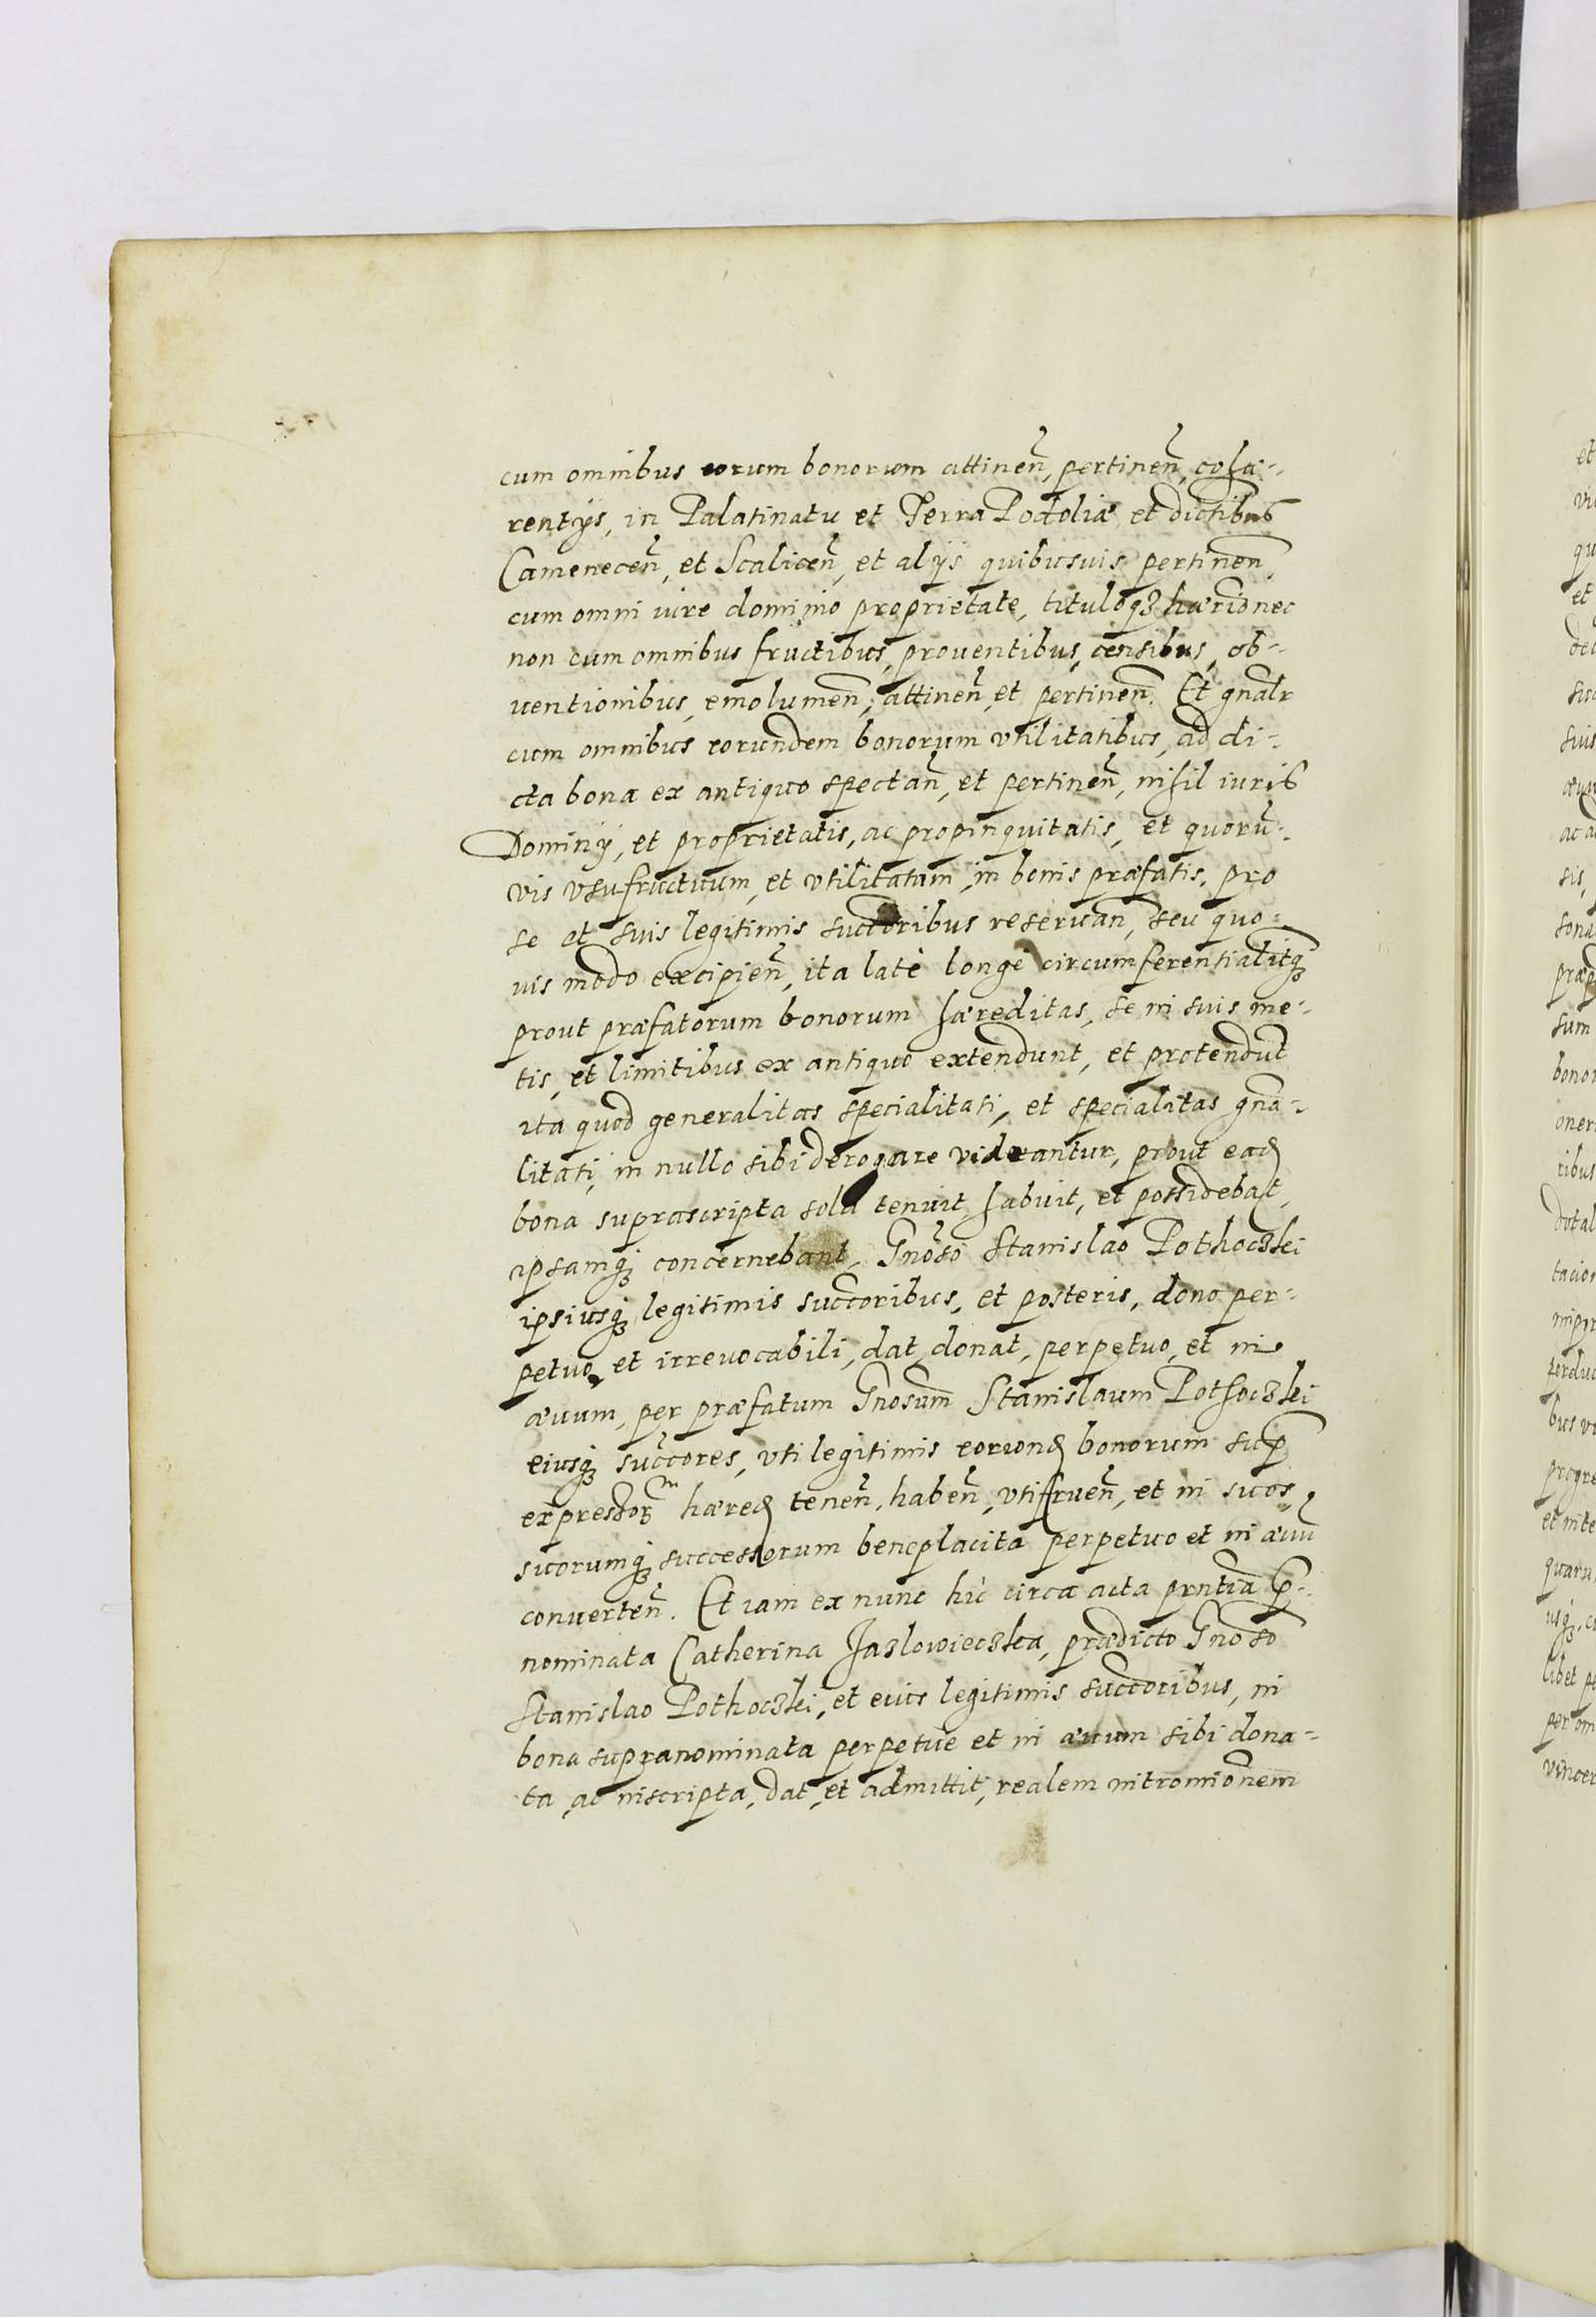 cum omnibus eorum bonorum attineñ, pertineñ, cohæ-
rentÿs, in Palatinatu et Terra Podoliæ et dictibus
Cameneceñ, et Scaliceñ, et alÿs quibusuis pertineñ,
cum omni iure dominio proprietate, tituloqȝ hæridnec
non cum omnibus fructibus, prouentibus, censibus, ob-
uentionibus, emolumeñ, attineñ, et pertineñ. Et gnalr
cum omnibus eorundem bonorum vtilitatibus, ad di-
cta bona ex antiquo spectañ, et pertineñ, nihil iuris
Dominÿ, et proprietatis, ac propinquitatis, et quorũ-
vis vsufructuum, et vtilitatum, in bonis præfatis, pro
se et suis legitimis succoribus reseruañ, seu quo-
uis modo excipieñ, ita latè longè circumferentialitqȝ
prout præfatorum bonorum hæreditas, se in suis me-
tis, et limitibus ex antiquo extendunt, et protendũt
ita quod generalitas specialitati, et specialitas gna-
litati, in nullo sibi derogare videantur, prout eaḍ
bona suprascripta sola tenuit habuit, et possidebat,
ipsamqȝ concernebant, Gnoso Stanislao Pothoczkei
ipsiusqȝ legitimis succoribus, et posteris, dono per-
petuo, et irreuocabili, dat donat, perpetuo, et in
æuum, per præfatum Gnosum Stanislaum Pothoczkei
eiusqȝ succores, vti legitimis eorunḍ bonorum sup
expressorm hæreḍ teneñ, habeñ, vtifrueñ, et in suos,
suorumqȝ successorum beneplacita perpetuo et in æuũ
conuerteñ. Et iam ex nunc hic circa acta pñtia p-
nominata Catherina Jazlowieczka, prædicto Gnoso
Stanislao Pothoczkei, et eius legitimis succoribus, in
bona supranominata perpetue et in æuum sibi dona-
ta, ac inscripta, dat, et admittit, realem intromionem